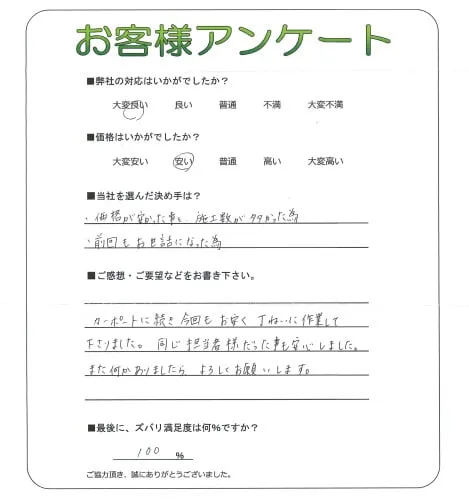 お客様アンケート
■弊社の対応はいかがでしたか？
大変良い 良い 普通 不満 大変不満
■価格はいかがでしたか？
大変安い 安い 普通 高い 大変高い
■当社を選んだ決め手は？
・価格が安かった事と、施工数が多かった為
・前回もお世話になった為
■ご感想・ご要望などをお書き下さい。
カーポートに続き今回もお安く丁ねいに作業して
下さりました。同じ担当者様だった事も安心しました。
また何かありましたらよろしくお願いします。
■最後に、ズバリ満足度は何％ですか？
100 ％
ご協力頂き、誠にありがとうございました。